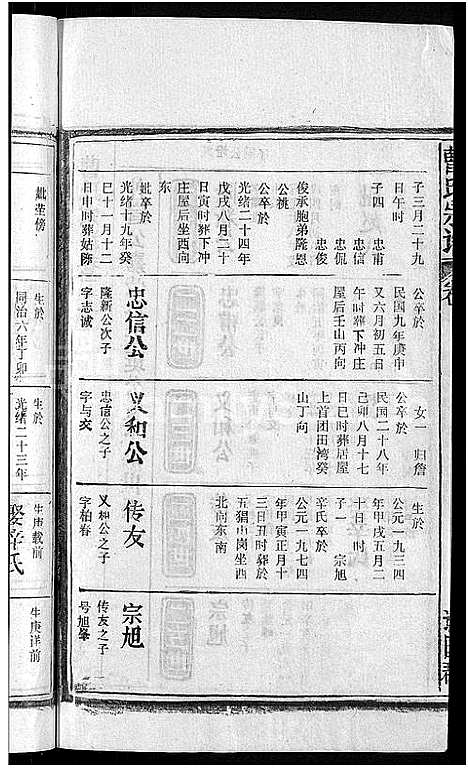 子三月二十九
日午时
子四　忠甫
忠信
忠侃
忠俊
俊承胞弟隆恩
公桃
公卒於
光绪二十四年
戊戌八月二十
日寅时葬下冲
庄屋后坐西向
东
妣卒於
光绪十九年癸
巳十一月十二
日申时葬姑陈
妣茔傍
公卒於
民国九年庚申
又六月初五日
午时葬下冲庄
屋后壬山丙向
忠信公
隆新公次子
字志诚
生於
同治六年丁卯
女一　归詹
公卒於
民国二十八年
己卯八月十七
日巳时葬居屋
上首团田湾癸
山丁向
义和公
忠信公之子
字与交
生於
光绪二十三年
生於
公元一九三四
年甲戌五月二
十日　时
子一　宗旭
辛氏卒於
公元一九七四
年甲寅正月十
三日丑时葬於
五猖山岗坐西
北向东南
传友
义和公之子
字柏春
生庚载前
娶辛氏
宗旭
传友之子　一
号旭峰
生庚详前